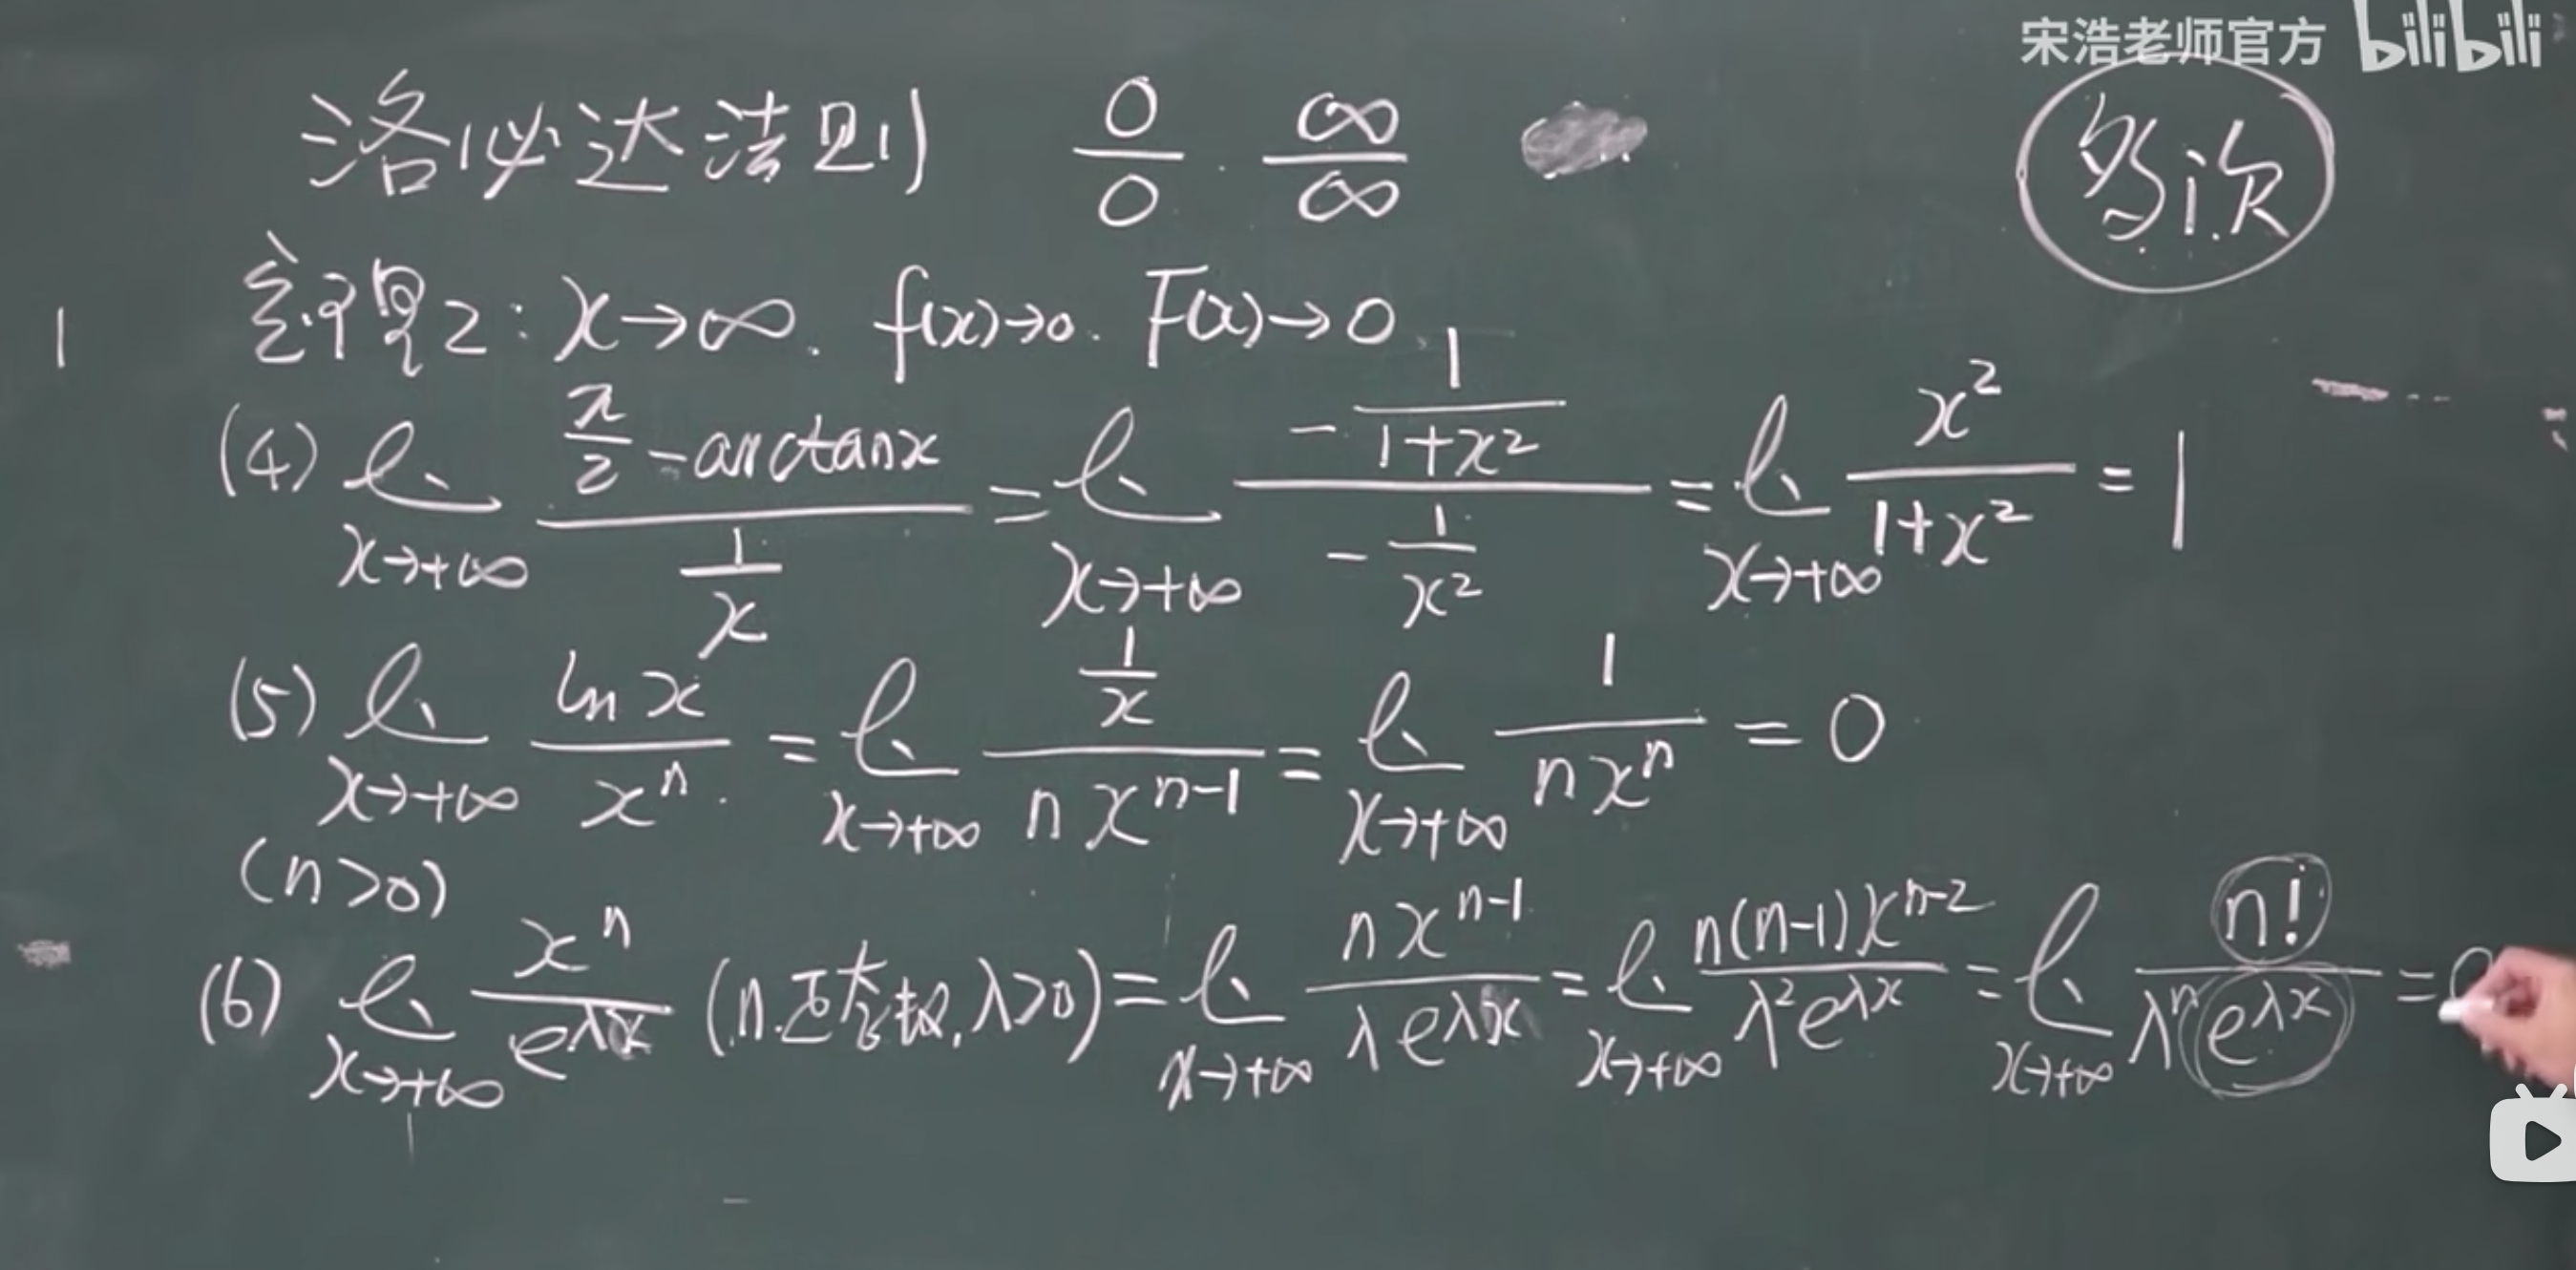 宋浩老师官方 bilibili
洛必达法则 0/0 . ∞/∞ 多次
定理2: x→∞. f(x)→0. F(x)→0
(4) lim_{x→+∞} (π/2 - arctanx)/(1/x) = lim_{x→+∞} (-1/(1+x²))/(-1/x²) = lim_{x→+∞} x²/(1+x²) = 1
(5) lim_{x→+∞} ln x/xⁿ = lim_{x→+∞} (1/x)/(n xⁿ⁻¹) = lim_{x→+∞} 1/(n xⁿ) = 0
(n>0)
(6) lim_{x→+∞} xⁿ/e^{λx} (n.正整数,λ>0) = lim_{x→+∞} n xⁿ⁻¹/(λ e^{λx}) = lim_{x→+∞} n(n-1)xⁿ⁻²/(λ² e^{λx}) = lim_{x→+∞} n!/(λⁿ e^{λx}) = 0